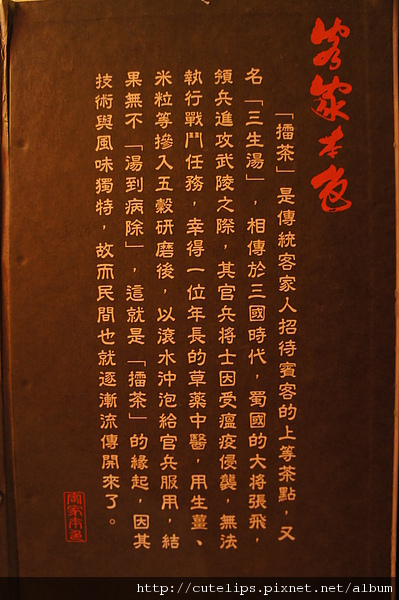 客家本色
「擂茶」是傳統客家人招待賓客的上等茶點，又
名「三生湯」，相傳於三國時代，蜀國的大將張飛，
領兵進攻武陵之際，其官兵將士因受瘟疫侵襲，無法
執行戰鬥任務，幸得一位年長的草藥中醫，用生薑、
米粒等摻入五穀研磨後，以滾水沖泡給官兵服用，結
果無不「湯到病除」，這就是「擂茶」的緣起，因其
技術與風味獨特，故而民間也就逐漸流傳開來了。
客家本色
http://cutelips.pixnet.net/album